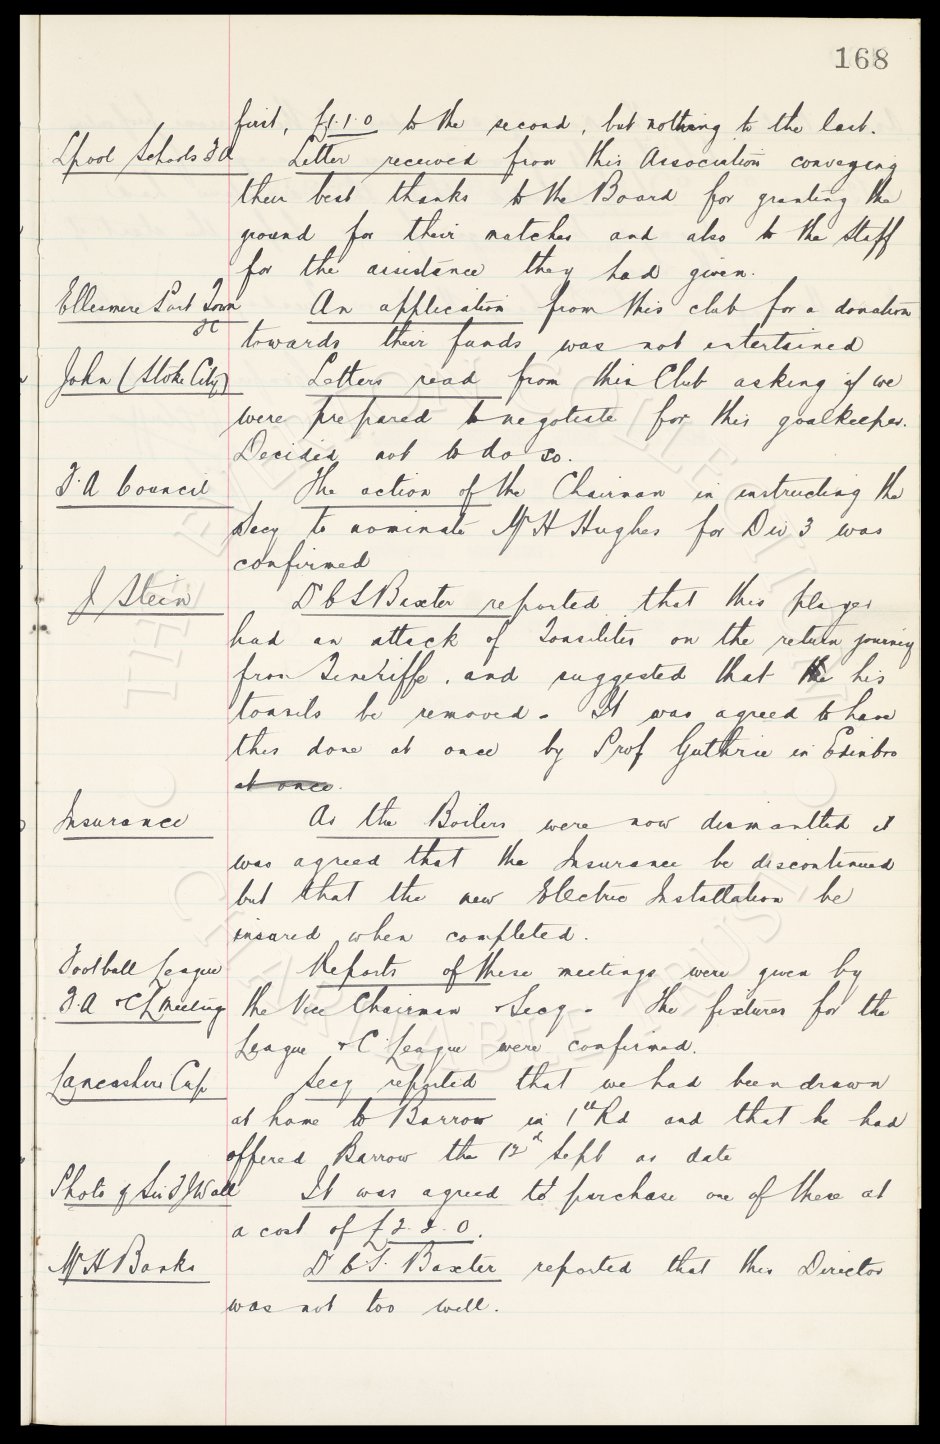 168
first, £1.1.0 to the second, but nothing to the last.
L'pool Schools F A Letter received from this Association conveying
their best thanks to the Board for granting the
ground for their matches and also to the Staff
for the assistance they had given.
Ellesmere Port Town An application from this club for a donation
FC
towards their funds was not entertained
John (Stoke City) Letters read from this Club asking if we
were prepared to negotiate for this goalkeeper.
Decided not to do so.
F.A Council The action of the Chairman in instructing the
Secy to nominate Mr H Hughes for Div 3 was
confirmed
J Stein Dr C S Baxter reported that this player
had an attack of Tonsilites on the return journey
from Teneriffe, and suggested that the his
tonsils be removed - It was agreed to have
this done at once by Prof Guthrie in Edinbro
at once.
Insurance As the Boilers were now dismantled it
was agreed that the Insurance be discontinued
but that the new Electric Installation be
insured when completed.
Football League Reports of these meetings were given by
F.A & C L Meetings the Vice Chairman & Secy - The fixtures for the
League & C. League were confirmed.
Lancashire Cup Secy reported that we had been drawn
at home to Barrow in 1st Rd and that he had
offered Barrow the 12th Sept as date
Photo of Sir F J Wall It was agreed to purchase one of these at
a cost of £2.2.0.
Mr H Banks Dr C S. Baxter reported that this Director
was not too well.
THE EVERTON COLLECTION
CHARITABLE TRUST